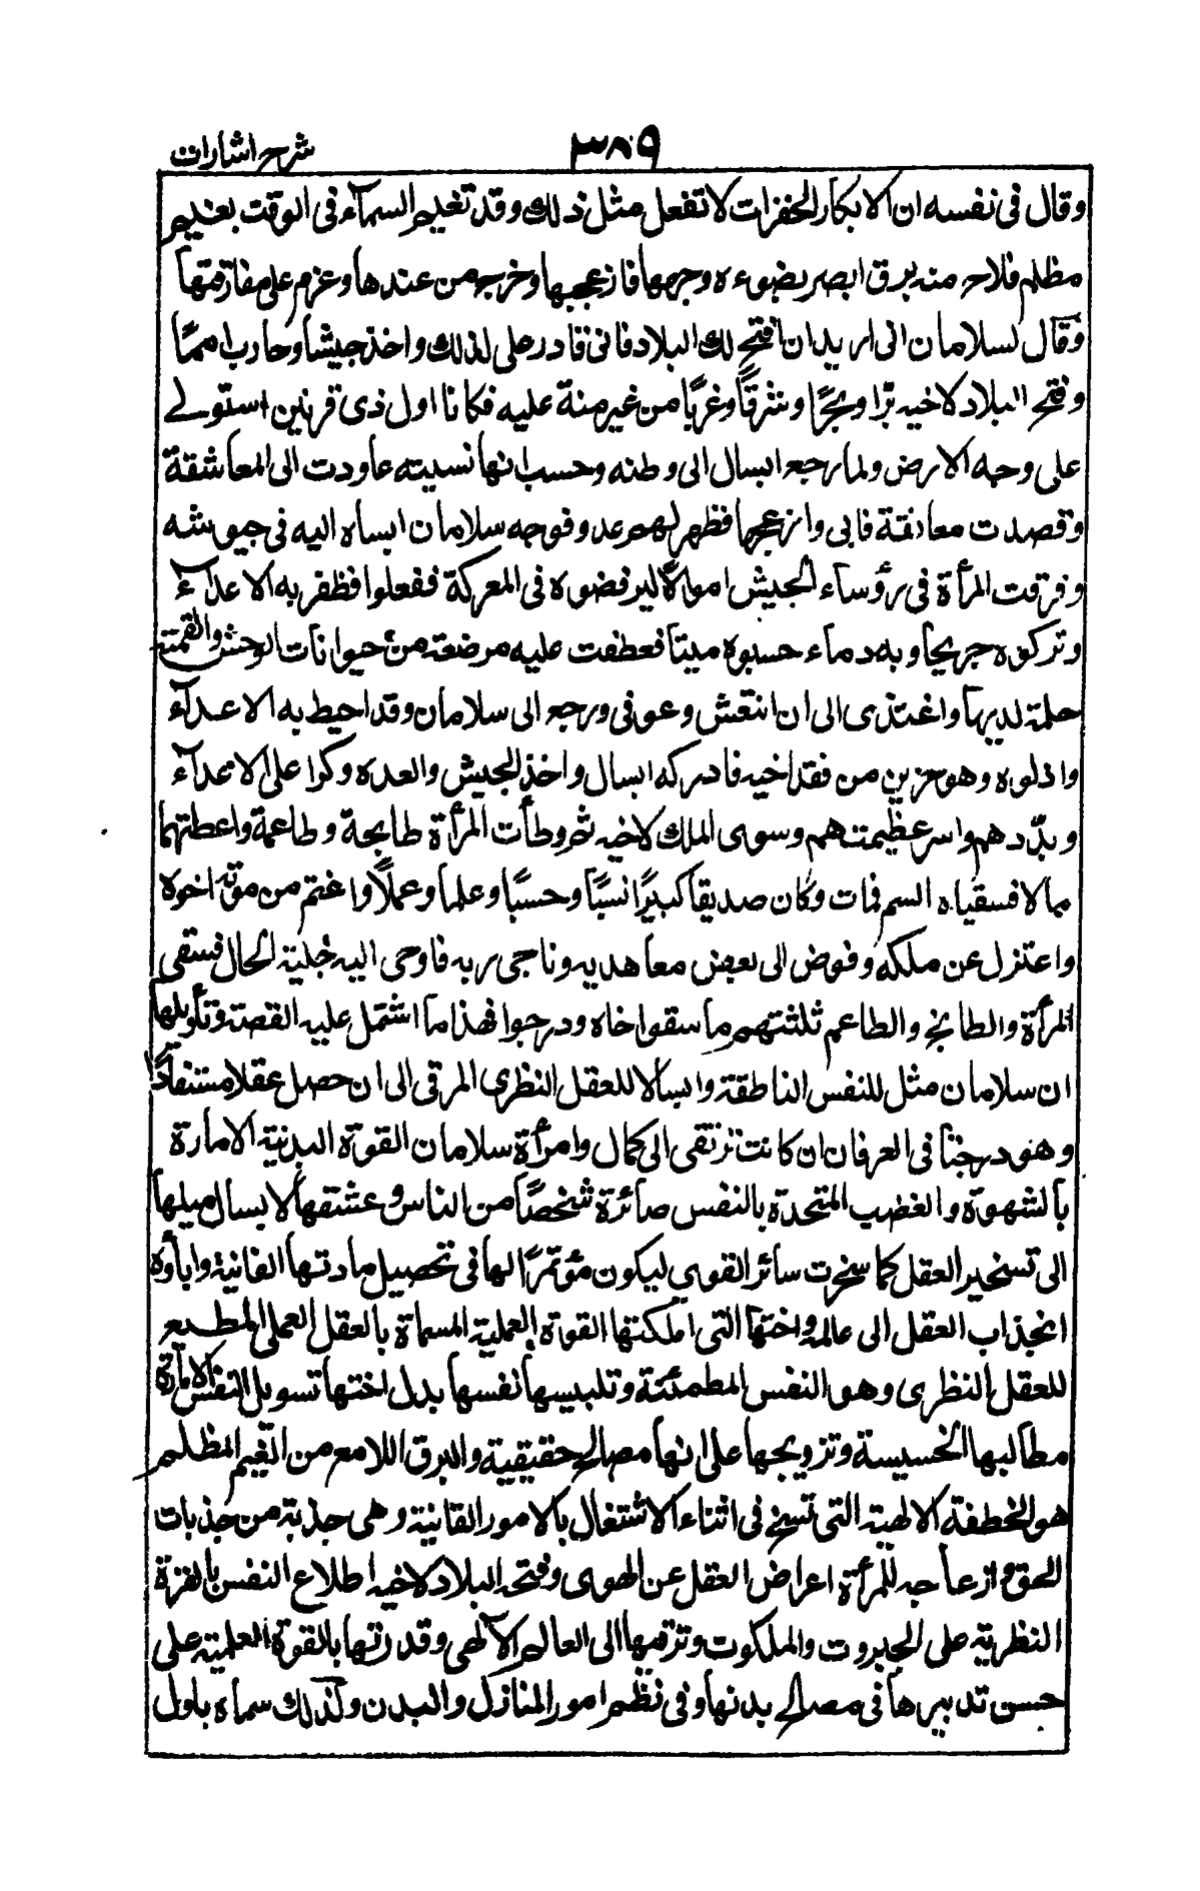 شرح اشارات
٣٨٩
وقال فى نفسه ان الابكار الخفرات لا تفعل مثل ذلك وقد تغيم السمآء فى الوقت بغيم
مظلم فلاح منه برق ابصر بضوءه وجهها فازعجها وخرج من عندها وعزم على مفارقتها
وقال لسلامان انى اريد ان افتح لك البلاد فانى قادر على لذلك واخذ جيشا وحارب امماً
وفتح البلاد لاخيه برّا وبحرًا وشرقاً وغربًا من غير منة عليه فكانا اول ذى قرنين استولے
على وجه الارض ولما رجع ابسال الى وطنه وحسب انها نسيته عاودت الى المعاشقة
وقصدت معانقة فابى وازعجها فظهر لهم عدو فوجه سلامان ابساه اليه فى جيوشه
وفرقت المرأة فى رؤساء الجيش اموالًا ليرفضوه فى المعركة ففعلوا فظفر به الاعدآء
وتركوه جريحا وبه دماء حسبوه ميتا فعطفت عليه مرضعة من حيوانات الوحش والقمته
حلمة لديها واغتذى الى ان انتعش وعوفى ورجع الى سلامان وقد احيط به الاعدآء
واذلوه وهو حزين من فقد اخيه فادركه ابسال واخذ الجيش والعده وكرا على الاعدآء
وبدّدهم واسر عظيمتهم وسوى الملك لاخيه ثم وطأت المرأة طابخة وطاعمة واعطتهما
مالا فسقياه السم فمات وكان صديقا كبيرًا نسبًا وحسبًا وعلما وعملًا واغتم من موته اخوه
واعتزل عن ملكه وفوض الى بعض معاهديه وناجى ربه فاوحى اليه جلية الحال فسقى
المرأة والطابخ والطاعم ثلثتهم ما سقوا خاه ودرجوا فهذا ما اشتمل عليه القصة وتأويلها
ان سلامان مثل للنفس الناطقة وابسالا للعقل النظرى المرقى الى ان حصل عقلا مستفادًا
وهو درجتا فى العرفان ان كانت ترتقى الى كمال وامرأة سلامان القوة البدنية الامارة
بالشهوة والغضب المتحدة بالنفس صائرة شخصًا من الناس وعشقها لابسال ميلها
الى تسخير العقل كما سخرت سائر القوى ليكون مؤتمرًا لها فى تحصيل مادتها الفانية واباؤه
انجذاب العقل الى عالمه واختها التى املكتها القوة العملية المسماة بالعقل العملى المطيع
للعقل النظرى وهو النفس المطمئنة وتلبيسها نفسها بدل اختها تسويل النفس الامارة
مطالبها الخسيسة وتزويجها على انها مصالح حقيقية والبرق اللامع من الغيم المظلم
هو الخطفة الالهية التى تسنح فى اثناء الاشتغال بالامور الفانية وهى جذبة من جذبات
الحق وازعاجه للمرأة اعراض العقل عن الهوى وفتحه البلاد لاخيه اطلاع النفس بالقوة
النظرية على الجبروت والملكوت وترقيها الى العالم الآلهى وقدرتها بالقوة العلمية على
حسن تدبيرها فى مصالح بدنها وفى نظم امور المنازل والبدن ولذلك سماه باول